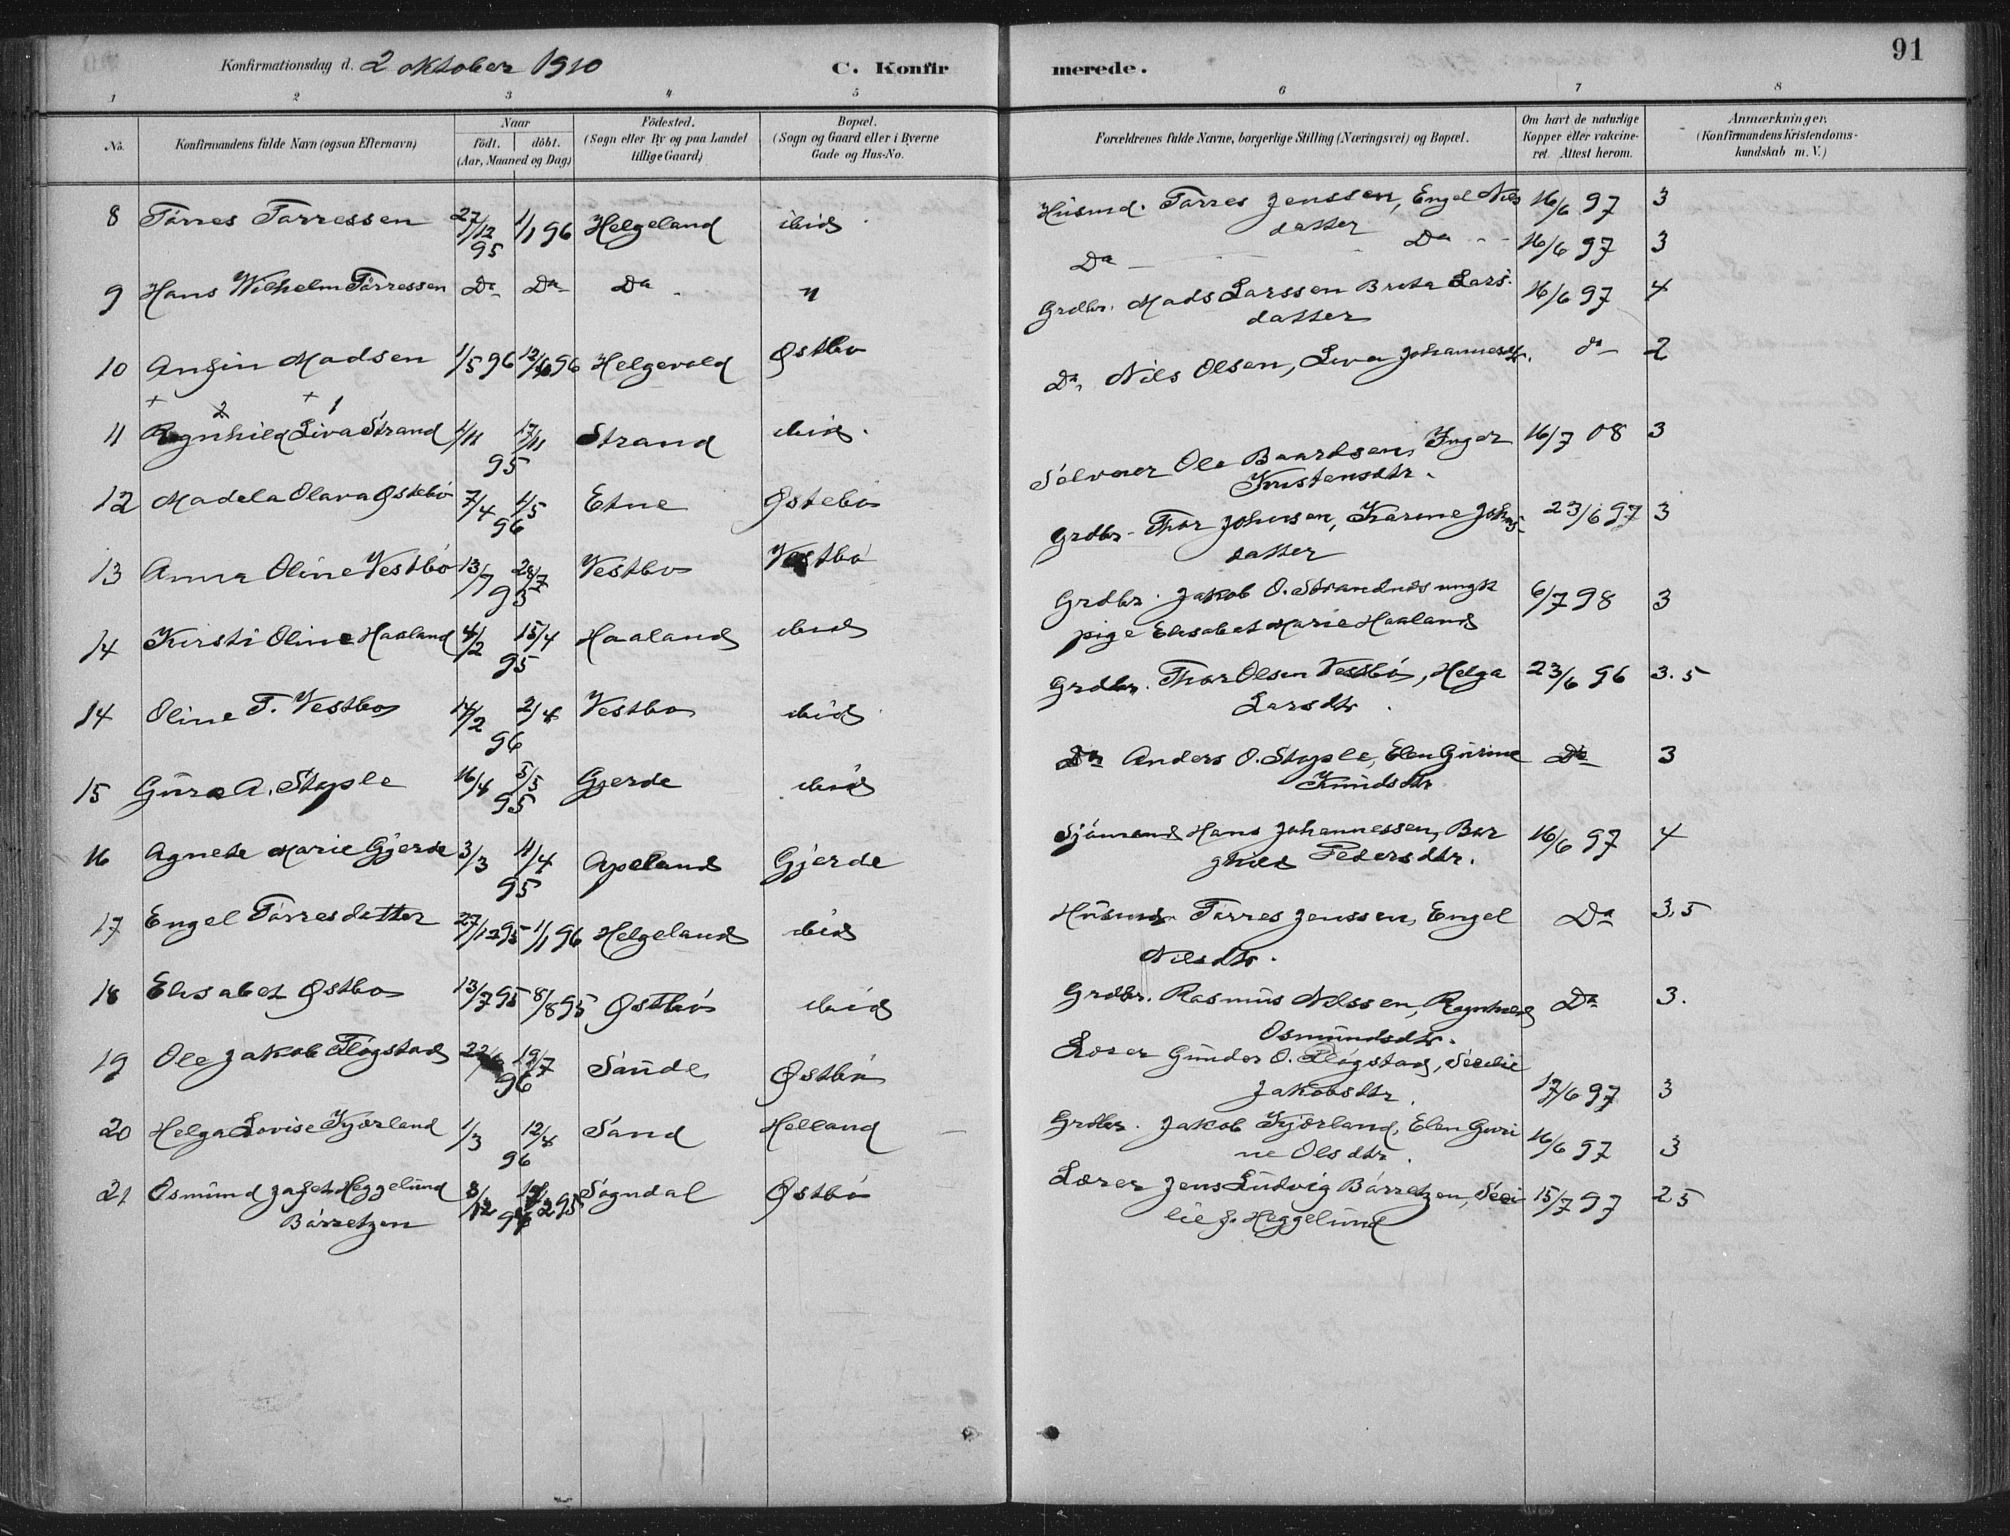 91
Konfirmationsdag d. 2 oktober 1910 C. Konfirmerede.
1 2 3 4 5 6 7 8
No. Konfirmandens fulde Navn (ogsaa Efternavn) Naar födt. döbt. (Aar, Maaned og Dag) Födested. (Sogn eller By og paa Landet tillige Gaard) Bopæl. (Sogn og Gaard eller i Byerne Gade og Hus-No. Forældrenes fulde Navne, borgerlige Stilling (Næringsvei) og Bopæl. Om havt de naturlige Kopper eller vakcineret. Attest herom. Anmærkninger. (Konfirmandens Kristendomskundskab m. V.)
8 Tørres Tørressen 27/12 95 1/1 96 Helgeland ibid. Husmd. Tørres Jenssen, Engel Nilsdatter 16/6 97 3
9 Hans Wilhelm Tørressen Do Do Do " Do Do 16/6 97 3
10 Madsen 1/5 96 96 Helgevold Østbø Grdbr. Mads Larssen Brita Larsdatter 16/6 97 4
11 Ragnhild Liva Strand 1/11 17/11 95 Strand ibid. Do Nils Olsen, Liva Johannesdt. do 2
12 Madela Olava Østebø 7/4 1/5 96 Etne Østebø Sølvarer Ole Baardsen, Inger Kristensdtr. 16/7 08 3
13 Anna Oline Vestbø 13/7 28/7 95 Vestbø Vestbø Grdbr. Thor Johnsen, Karine Johnsdatter 23/6 97 3
14 Kirsti Oline Haaland 4/2 15/4 95 Haaland ibid Grdbr. Jakob O. Strandnes ungk pige Elisabet Marie Haaland 6/7 98 3
14 Oline T. Vestbø 14/2 2/4 96 Vestbø ibid Grdbr. Thor Olsen Vestbø, Helga Larsdtr. 23/6 96 3.5
15 Gura A. Stople 16/4 5/5 95 Gjerde ibid Do Anders O. Stople, Elen Gurine Knudsdtr Do 3
16 Agnete Marie Gjerde 3/3 11/4 95 Apeland Gjerde Sjømand Hans Johannessen, Borghild Pedersdtr. 16/6 97 4
17 Engel Tørresdatter 27/12 95 1/1 96 Helgeland ibid Husmd. Tørres Jenssen, Engel Nilsdtr. Do 3.5
18 Elisabet Østbø 13/7 95 8/8 95 Østbø ibid Grdbr. Rasmus Nilssen, Ragnhild Osmundsdtr. Do 3.
19 Ole Jakob Fløgstad 19/7 96 Sande Østbø Lærer Gunder O. Fløgstad, Secelie Jakobsdtr. 17/6 97 3
20 Helga Lovise Kjørland 1/3 12/4 96 Sand Helland Grdbr. Jakob Kjørland, Elen Gurine Olsdtr. 16/6 97 3
21 Osmund Jafet Heggelund Børretzen 8/12 95 Sogndal Østbø Lærer Jens Ludvig Børretzen, Secilie J. Heggelund 15/7 97 2 5